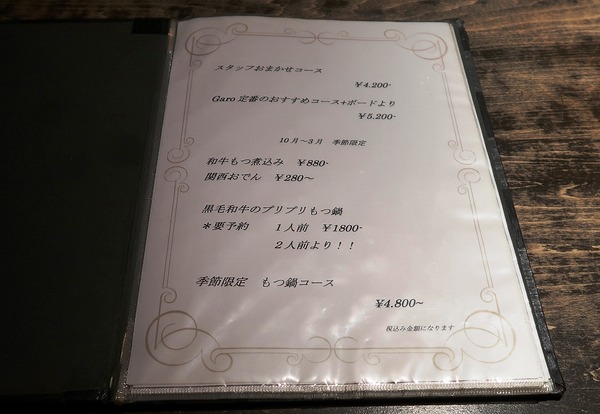 スタッフおまかせコース
￥4.200-
Garo 定番のおすすめコース+ボードより
￥5.200-
10月～3月 季節限定
和牛もつ煮込み ￥880-
関西おでん ￥280～
黒毛和牛のプリプリもつ鍋
＊要予約 1人前 ￥1800-
2人前より！！
季節限定 もつ鍋コース
￥4.800～
税込み金額になります